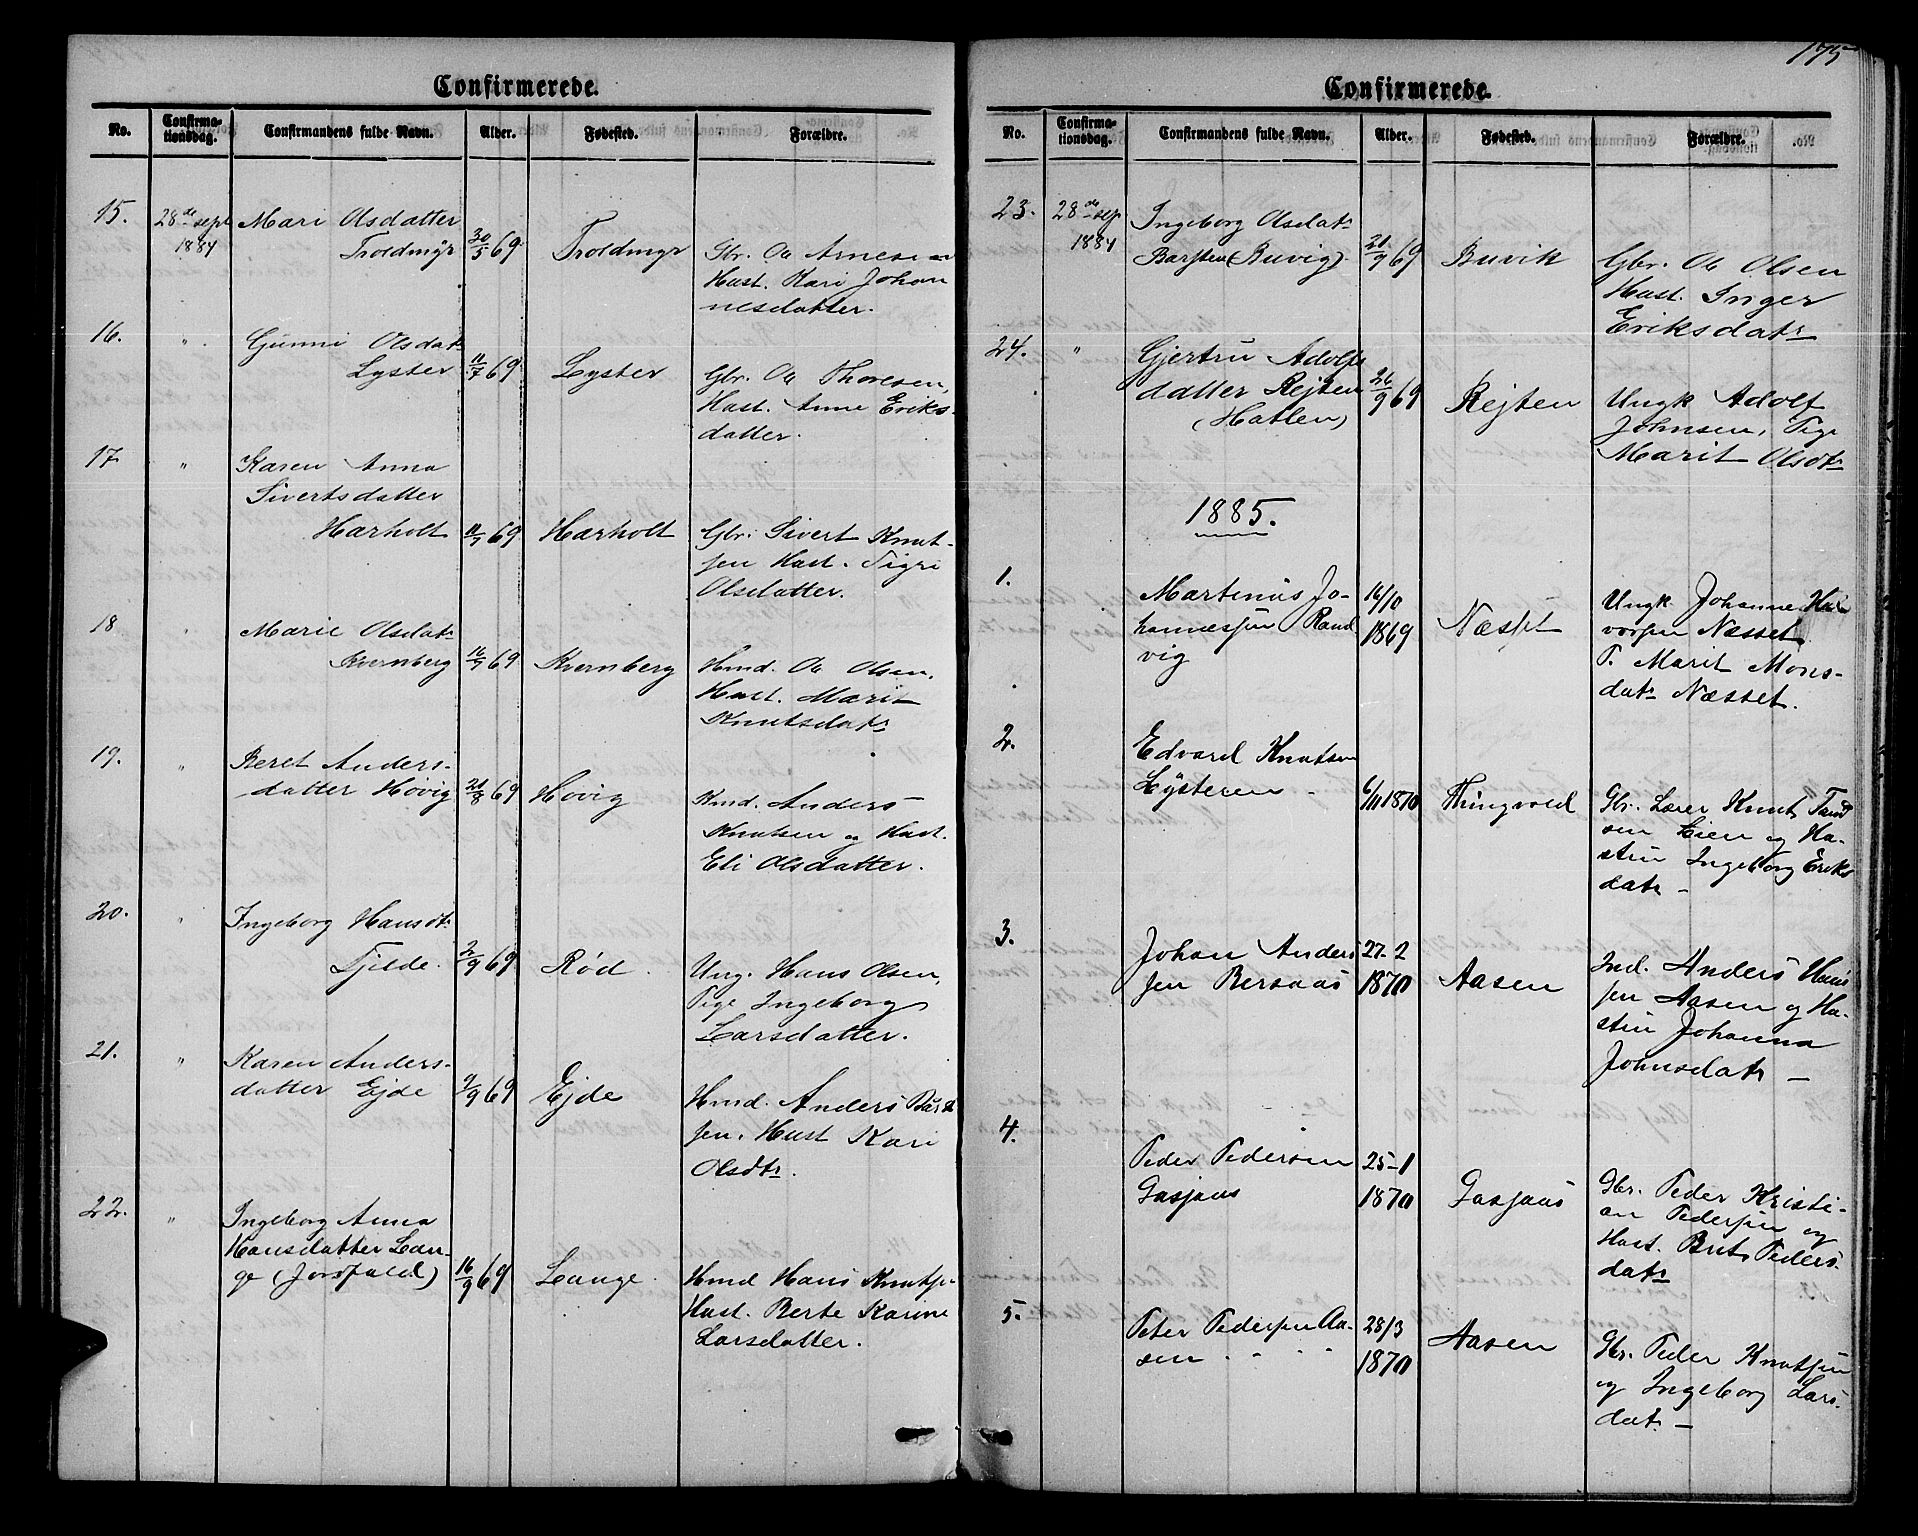 Confirmerede.
No.
Confirma-
tionsdag.
Confirmandens fulde Navn.
Alder.
Fødested.
Forældre.
15.
28de sept
1884
Mari Olsdatter
Troldmyr
30/5 69
Troldmyr
Gbr. Ole Arnesen
Hust. Kari Johan
nesdatter.
16.
"
Gunni Olsdatr
Lyster
11/7 69
Lyster
Gbr. Ole Thoresen,
Hust. Anne Eriks-
datter.
17
"
Karen Anna
Sivertsdatter
Harholt
11/7 69
Harholt
Gbr. Sivert Knut-
sen Hust. Sigri
Olsdatter.
18
"
Marie Olsdatr
Kvernberg
16/7 69
Kvernberg
Hmd. Ole Olsen,
Hust. Marit
Knutsdatr
19.
"
Beret Anders-
datter Høvig
21/8 69
Høvig
Hmd. Anders
Knutsen og Hust.
Eli Olsdatter.
20.
"
Ingeborg Hansdtr
Tjelde.
2/9 69
Rød.
Ung. Hans Olsen,
Pige Ingeborg
Larsdatter.
21.
"
Karen Anders-
datter Ejde
9/9 69
Ejde
Hmd. Anders Bård
sen, Hust Kari
Olsdtr.
22.
"
Ingeborg Anna
Hansdatter Lan-
ge
16/9 69
Lange.
Hmd Hans Knuts.
Hust. Berte Karine
Larsdatter.
175
Confirmerede.
No.
Confirma-
tionsdag.
Confirmandens fulde Navn.
Alder.
Fødested.
Forældre.
23.
28de sep
1884
Ingeborg Olsdatr
Barsten (Buvig).
21/9 69
Buvik
Gbr. Ole Olsen
Hust. Inger
Eriksdatr
24.
"
Gjertru Adolfs
datter Rejten
(Hatlen)
26/9 69
Rejten
Ungk Adolf
Johnsen, Pige
Marit Olsdtr
1885.
1.
Martinus Jo-
hannessen Rand
vig
14/10
1869
Næsset
Ungk Johannes Hal
vorsen Næsset
P. Marit Mons-
datr Næsset.
2.
Edvard Knutsen
Lysteren
6/11 1870
Thingvold
Gbr. Lærer Knut
sen Lien og Hu-
stru Ingeborg Eriks
datr -
3.
Johan Anders
sen Bersaas
27-2
1870
Aasen
Ind. Anders Hans
sen Aasen og Hu-
stru Johanna
Johnsdatr -
4.
Peder Pedersen
Gasjaas
25-1
1870
Gasjaas
Gbr. Peder Kristi-
an Pedersen og
Hust. Brit Peders
datr
5.
Peter Pedersen Aa-
sen
28/3
1870
Aasen
Gbr. Peder Knutsen
og Ingeborg Lars-
datr -